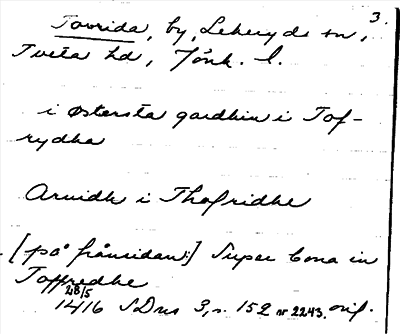 3.
Tovrida, by, Lekeryds sn,
Tveta hd, Jönk. l.
i østersta gardhin i Tof-
rydha
Arnidh i Thofridhe
[på frånsidan:] Super bona in
Toffredhe
28/5
1416 SDns 3, s. 152 nr 2243. orig.